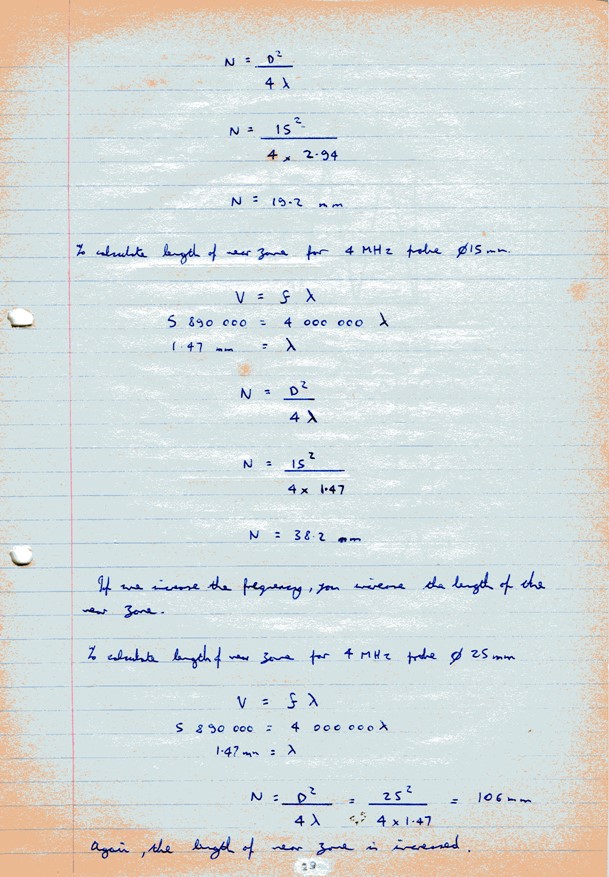 N = D²
4 λ
N = 15²
4 x 2.94
N = 19.2 mm
To calculate length of near zone for 4 MHz probe Ø15 mm.
V = f λ
5 890 000 = 4 000 000 λ
1.47 mm = λ
N = D²
4 λ
N = 15²
4 x 1.47
N = 38.2 mm
If we increase the frequency, you increase the length of the
near zone.
To calculate length of near zone for 4 MHz probe Ø 25 mm
V = f λ
5 890 000 = 4 000 000 λ
1.47 mm = λ
N = D² = 25² = 106 mm
4 λ 4 x 1.47
Again, the length of near zone is increased.
29